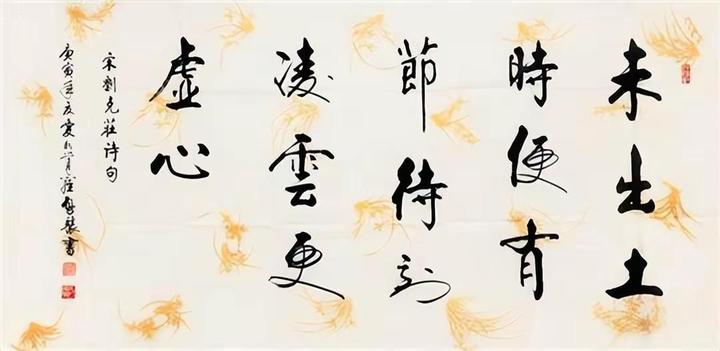 未出土
時便有
節待到
凌雲更
虛心
宋劉克莊詩句
庚寅年夏書